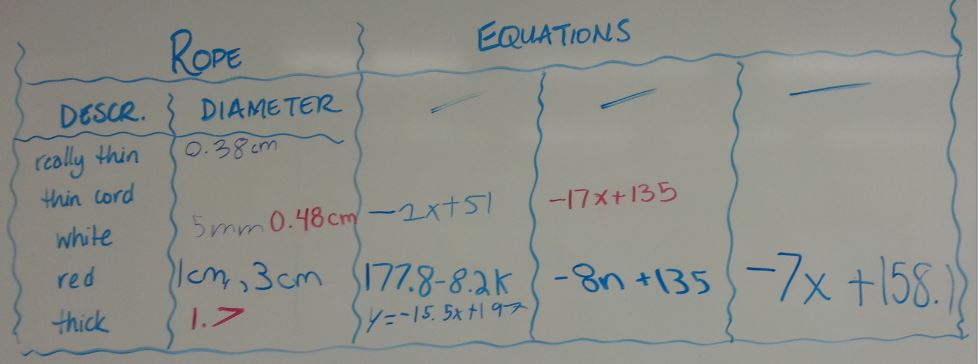 ROPE EQUATIONS
DESCR. DIAMETER — — —
really thin 0.38cm
thin cord -2x+51 -17x+135
white 5mm 0.48cm
red 1cm, 3cm 177.8-8.2k -8n+135 -7x+158.1
thick 1.7